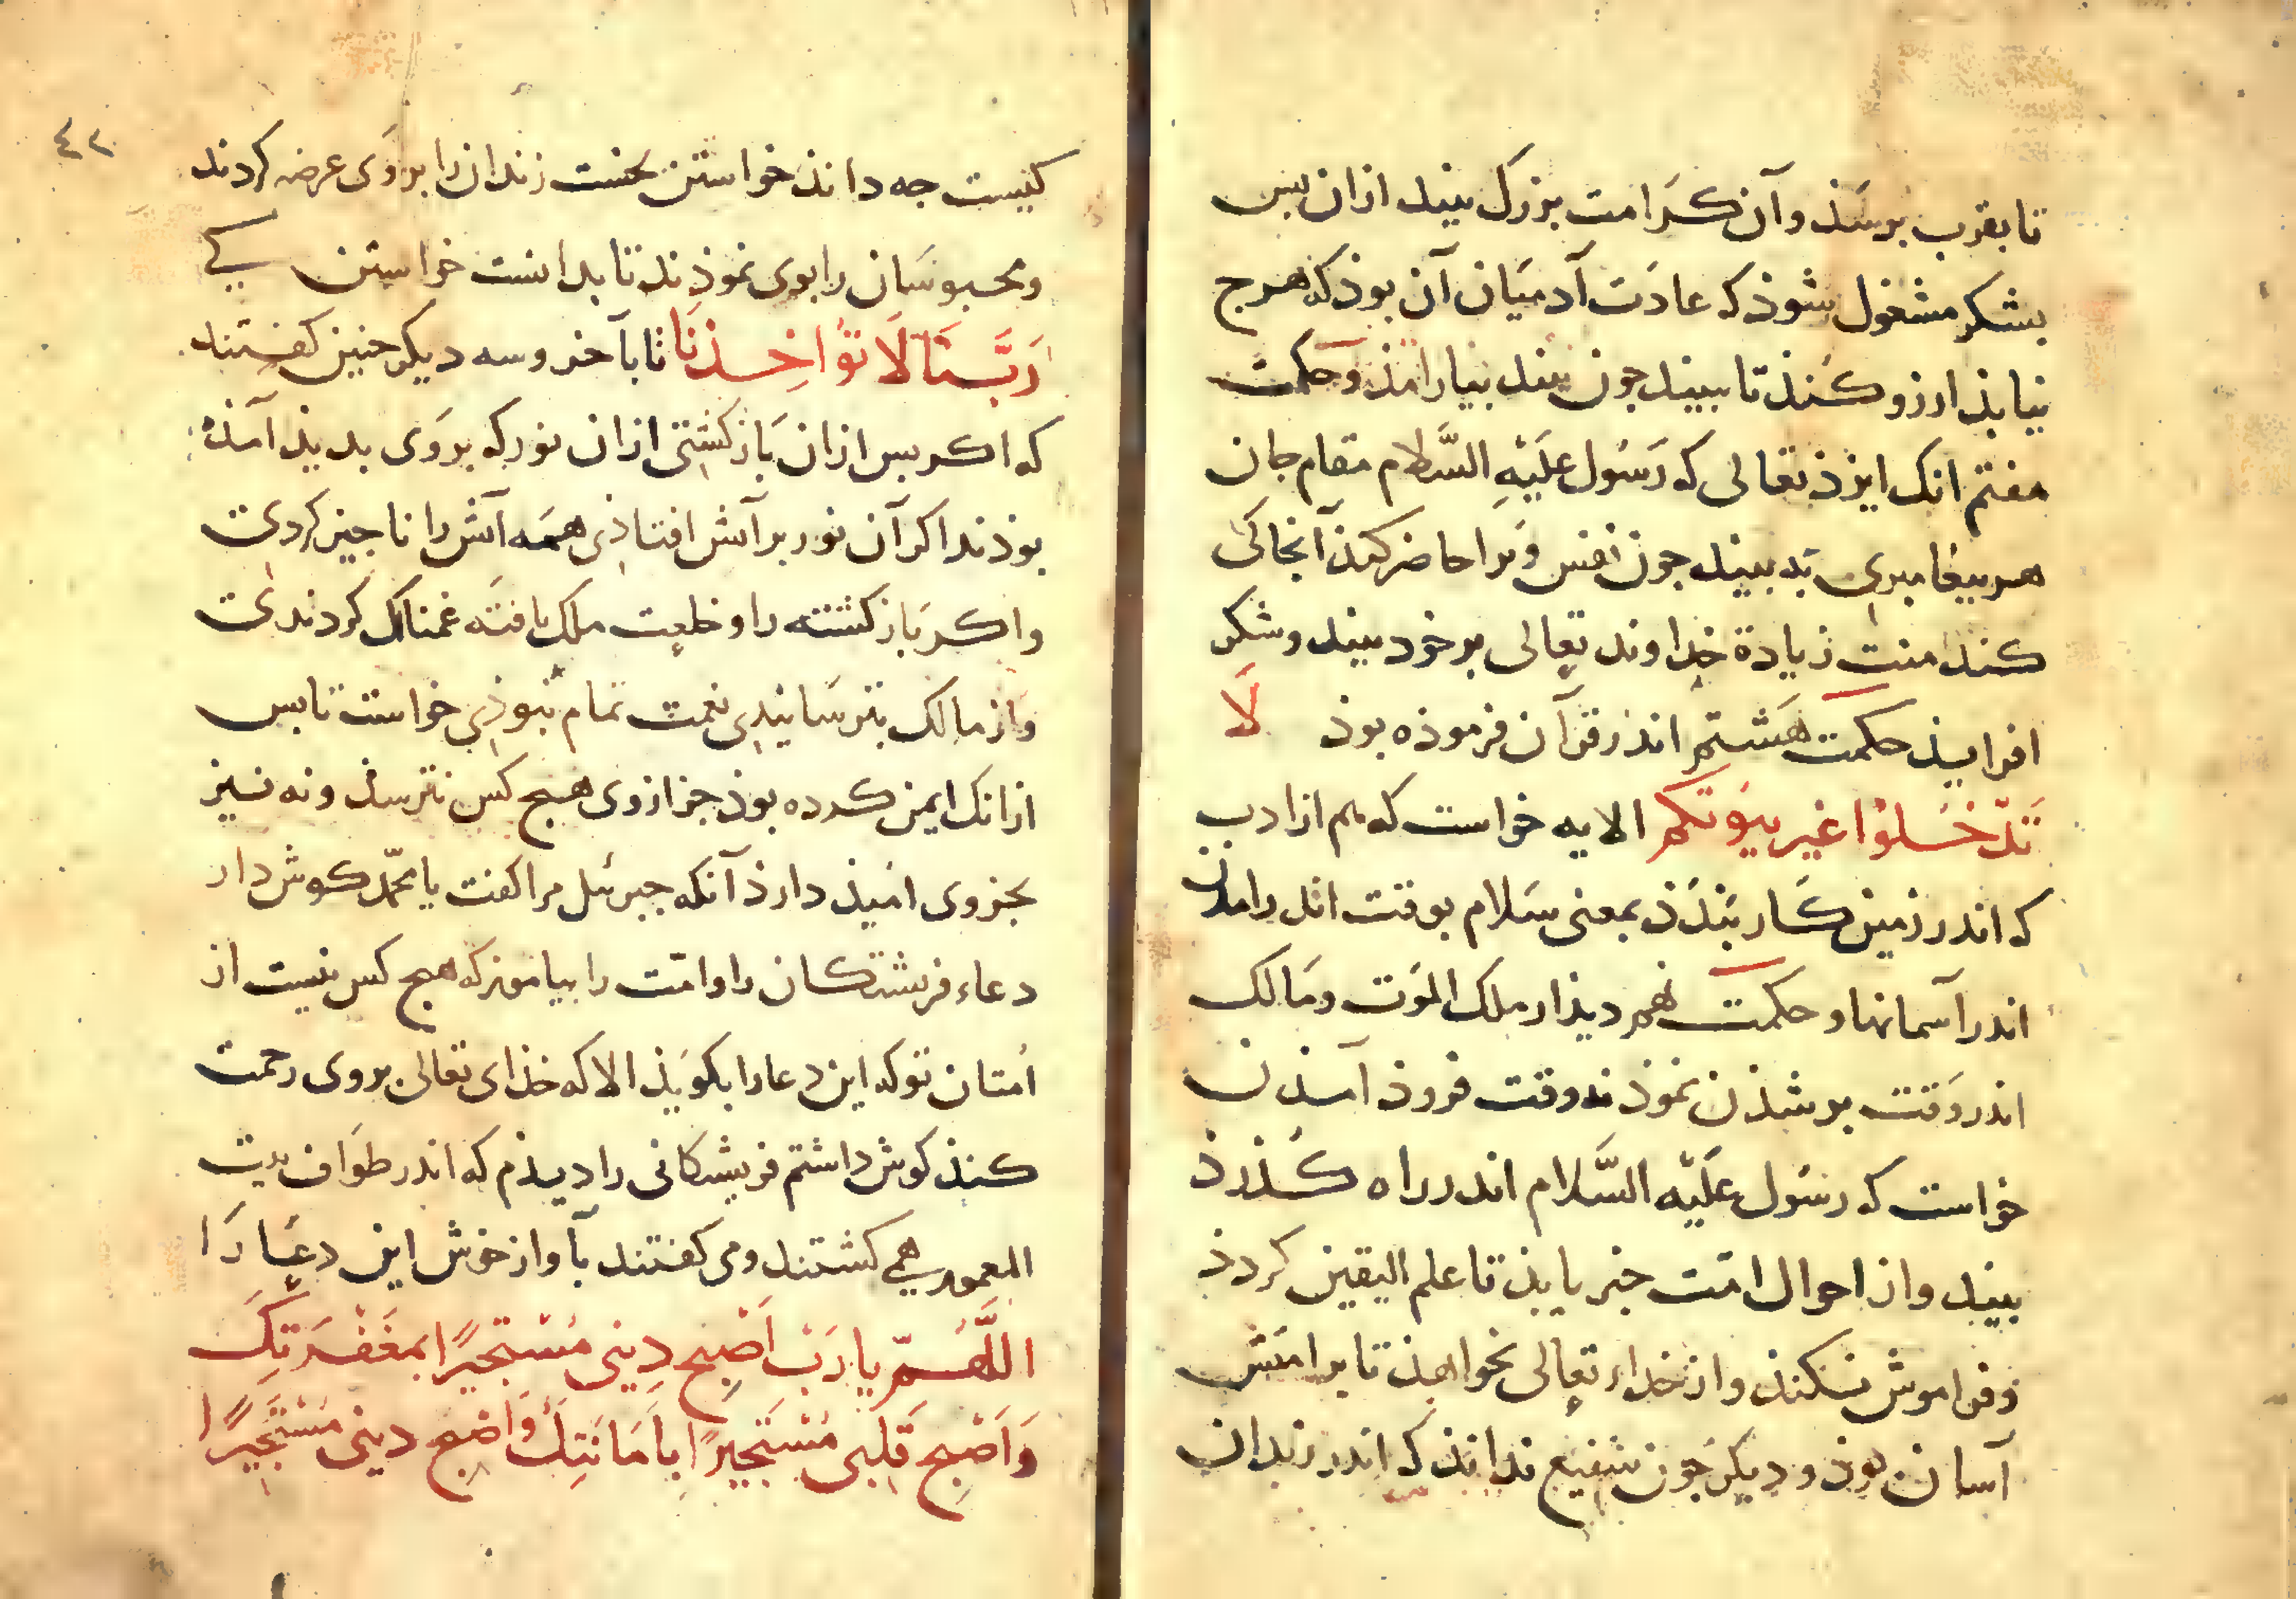 تا بقرب برسَذ و آن کَرَامت بزرک بیند ازان بس
بشکر مشغول شوذ که عادَت آدمیَان آن بوذ که هرج
نیابذ ارزو کُنذ تا ببیند جون بیند بیارامَذ و حکمت
هفتم انک ایزذ تعالی که رَسُول علَیْهِ السَّلام مقام جان
هر بیغامبری بد بیند جون نفس وَیرا حاضر کنذ آنجا کی
کنذ منت زیادة خداوند تعالی بر خود بیند و شکر
افزایذ حکمت هَشتم اندر قرآن فرموذه بوذ لَا
تَدْخُلوُا غیر بیوُتکم الایه خواست که هم از ادب
که اندر زمین کَار بَندَذ بمعنی سَلام بوقت اندرامدن
اندر آسمانها و حکمت نهم دیذار ملک الموَت و مَالک
اندر وَقت بر شذن نموذ نه وقت فروذ آمذن
خواست که رسُول علَیْه السَّلام اندر راه کُذرذ
بیند و از احوال امّت خبر یابذ تا علم الیقین کردذ
و فراموش نکنذ و از خداء تعالی بخواهذ تا بر امتش
آسان بوذ و دیکر جون شفیع نداند که اندر زندان
٤٢
کیست جه دانذ خواستن نخست زندان را بروَی عرضه کردند
و محبوسَان را بوی نموذند تا بدانست خواستن کی
رَبَّنَا لَا تؤُاخِذنَا تا بآخر و سه دیکر جنین کفتند
که اکر بس ازان بَاز کشتی ازان نور که بروَی بدیذ آمذه
بوذند اکر آن نور بر آتش افتاذی همَه آتش را ناجیز کردی
و اکر بَاز کشته را و خلعت ملک یافتَه غمناک کردندی
و از مالک بترسَانیدی نعمت تمام نبوذی خواست تا بس
ازانک ایمن کرده بوذ جز از وی هیج کس نترسذ و نه نیز
بجز وی امیذ دارذ آنکه جبرئل مرا کفت یا محمّد کوش دار
دعاء فریشتکان را و امّت را بیاموز که هیج کس نیست از
اُمتان تو که این دعا را بکویَذ الا که خذای تعالی بروی رحمت
کنذ کوش داشتم فریشتکانی را دیذم که اندر طوَاف بیت
المعمور همی کشتند و می کفتند بآواز خوش این دعَا رَا
اللَّهُمّ یا رَبْ اَصْبح دِینی مُسْتجیرًا بمَغفرَتِکَ
وَاَصْبح قَلبی مُسْتَجیرًا بِاَمَانَتِکَ وَاصْبح دینی مُسْتَجیرًا